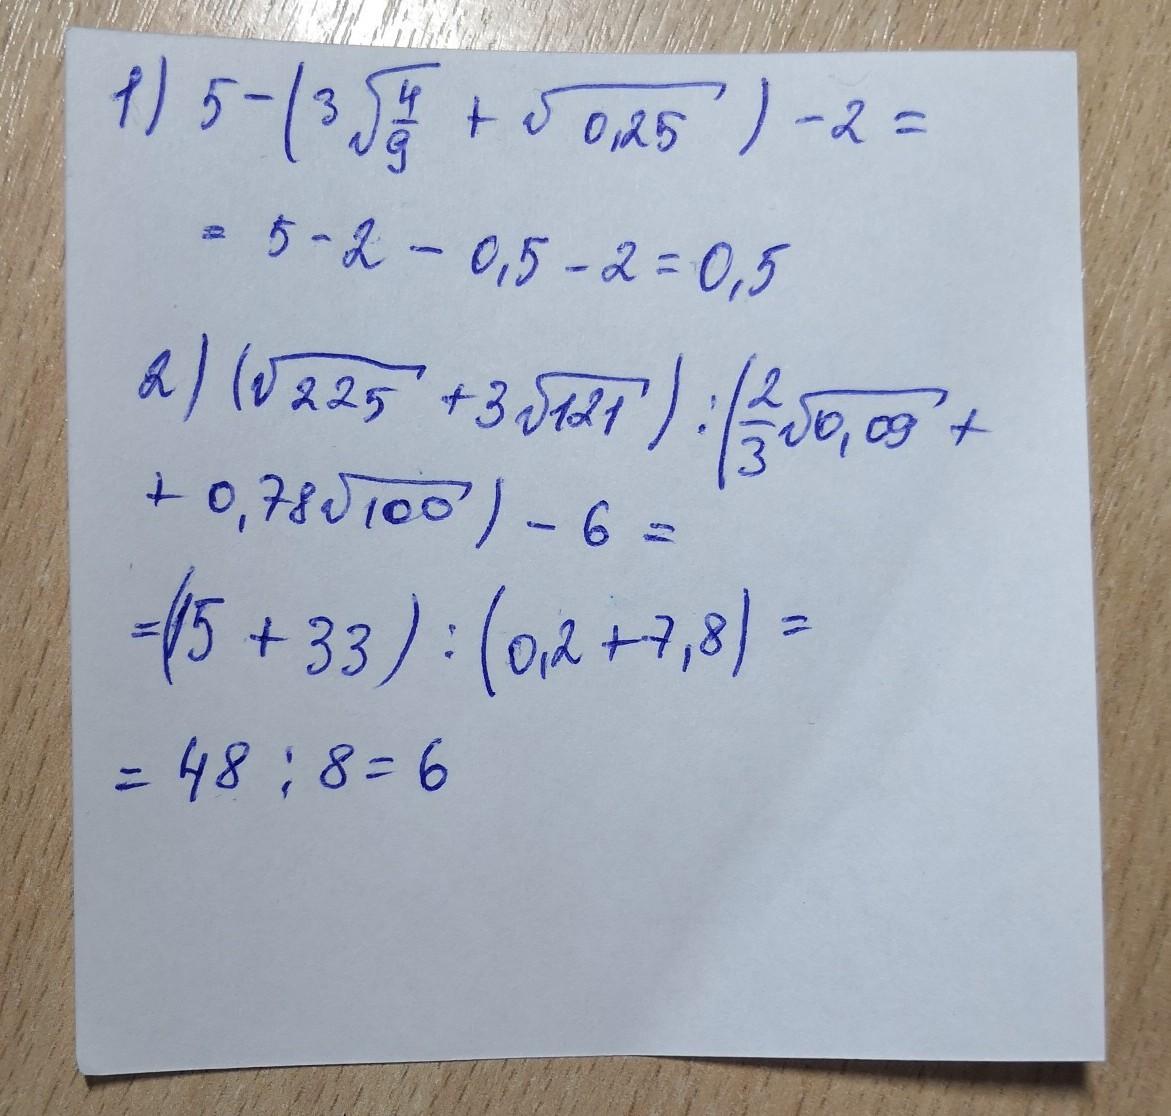 1) 5-(3√4/9 + √0,25) -2 =
= 5 - 2 - 0,5 - 2 = 0,5
2) (√225 +3√121) : (2/3√0,09 +
+ 0,78√100) - 6 =
=(15 + 33) : (0,2 + 7,8) =
= 48 : 8 = 6